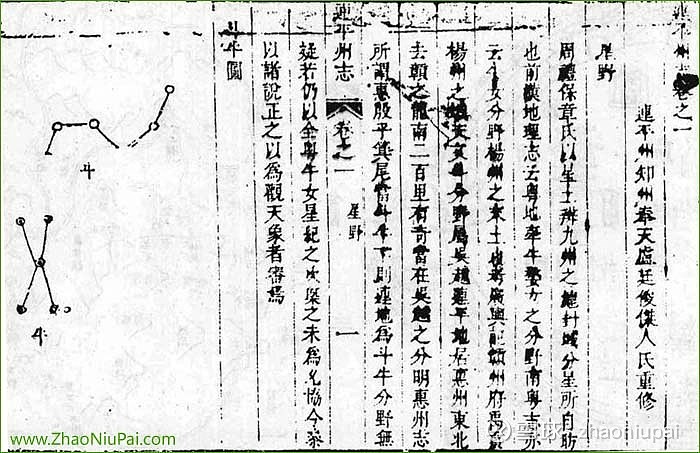 連平州志卷之一
連平州知州奉天盧廷俊傑人氏重修
星野
周禮保章氏以星土辨九州之地封域分星所自昉
也前漢地理志云粤地牽牛婺女之分野南粤志亦
云牛女分野楊州之末土也考廣輿記贛州府禹貢
楊州之域天文斗分野屬吳越連平地居惠州東北
去贛之龍南二百里有奇當在吳越之分明惠州志
連平州志 卷之一 星野 一
所謂惠股平箕尾當斗牛下則連地為斗牛分野無
疑若仍以全粤牛女星紀之次槩之未為允恊今叅
以諸說正之以為觀天象者審焉
斗牛圖
斗
牛
www.ZhaoNiuPai.com
雪球：zhaoniupai